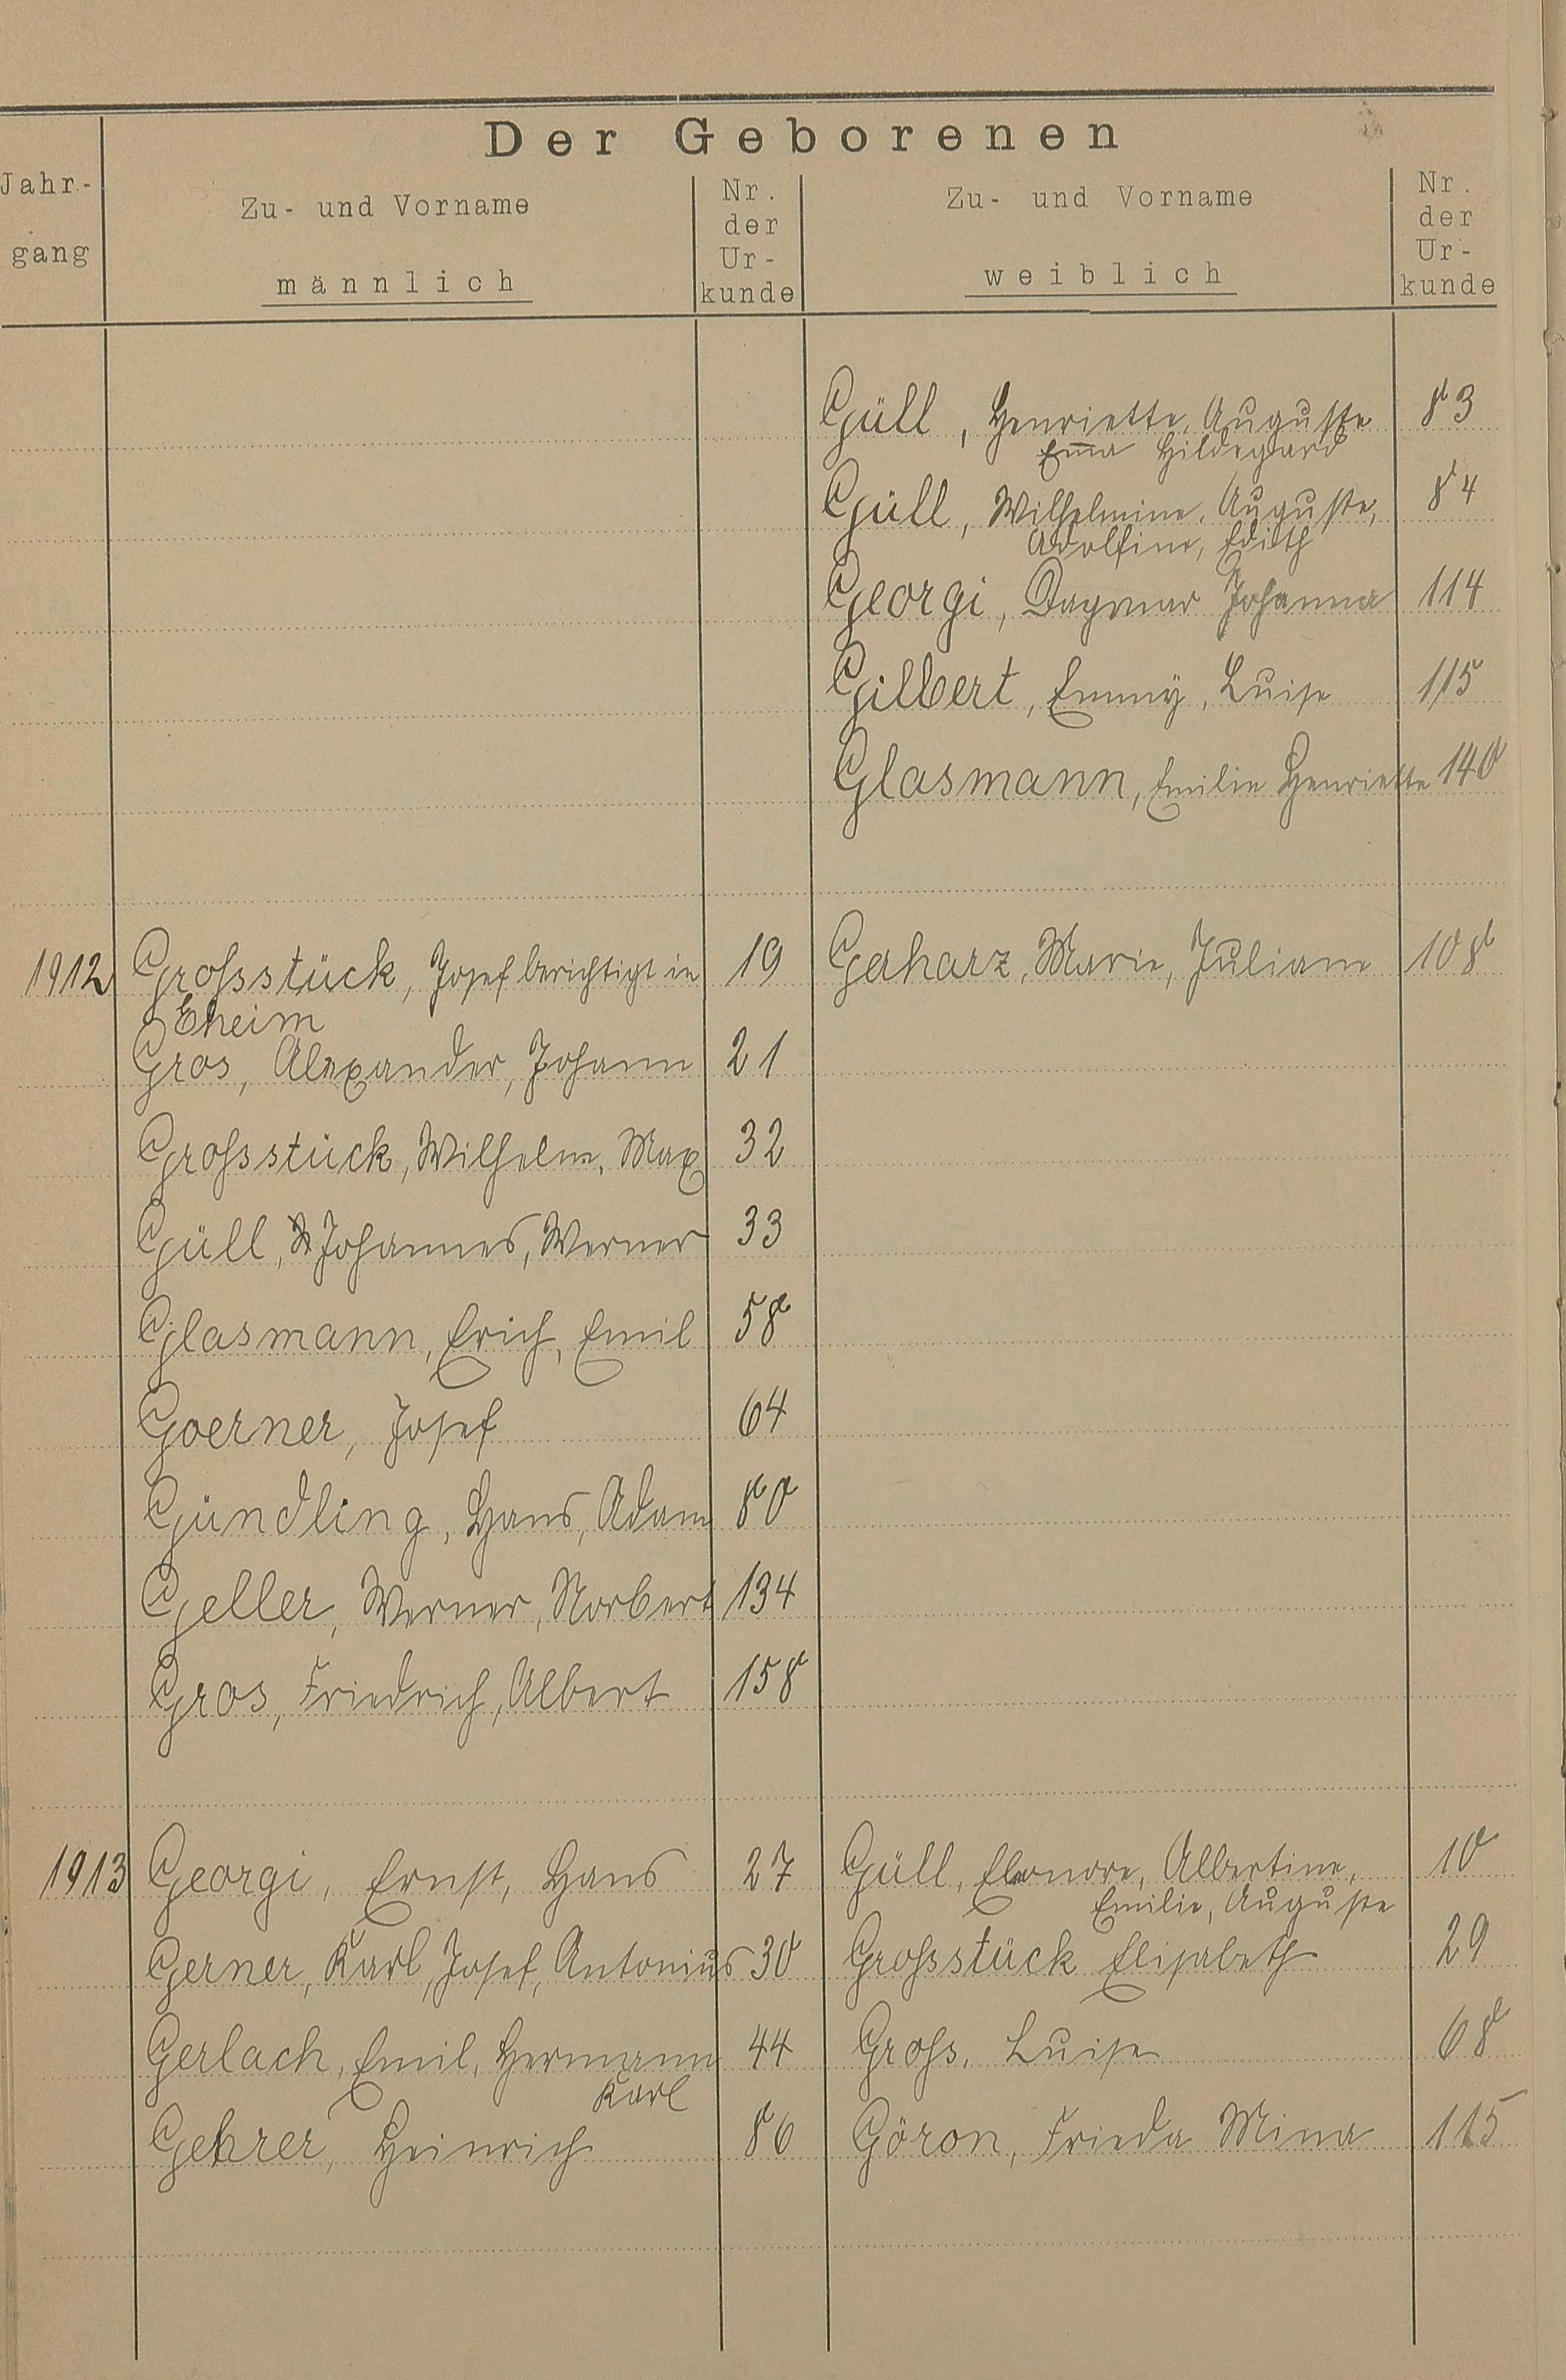 Der Geborenen
Jahr-
gang
Zu- und Vorname
männlich
Nr.
der
Ur-
kunde
Zu- und Vorname
weiblich
Nr.
der
Ur-
kunde
Güll, Henriette, Auguste 83
Em̄a Hildegard
Güll, Wilhelmine, Auguste, 84
Adolfine, Edith
Georgi, Dagmar Johanna 114
Gilbert, Emmÿ, Luise 115
Glasmann, Emilie Henriette 140
1912 Grossstück, Josef berichtigt in 19 Gerharz, Marie, Juliane 108
Eheim
Gros, Alexander, Johann 21
Grossstück, Wilhelm, Max 32
Güll, Johannes, Werner 33
Glasmann, Erich, Emil 58
Goerner, Josef 64
Gündling, Hans, Adam 80
Geller, Werner, Norbert 134
Gros, Friedrich, Albert 158
1913 Georgi, Ernst, Hans 27 Güll, Eleonore, Albertine, 10
Emilie, Auguste
Gerner, Karl, Josef, Antonius 30 Grossstück Elisabeth 29
Gerlach, Emil, Hermann 44 Gross, Luise 68
Karl
Gehrer, Heinrich 86 Göron, Frieda Mina 115